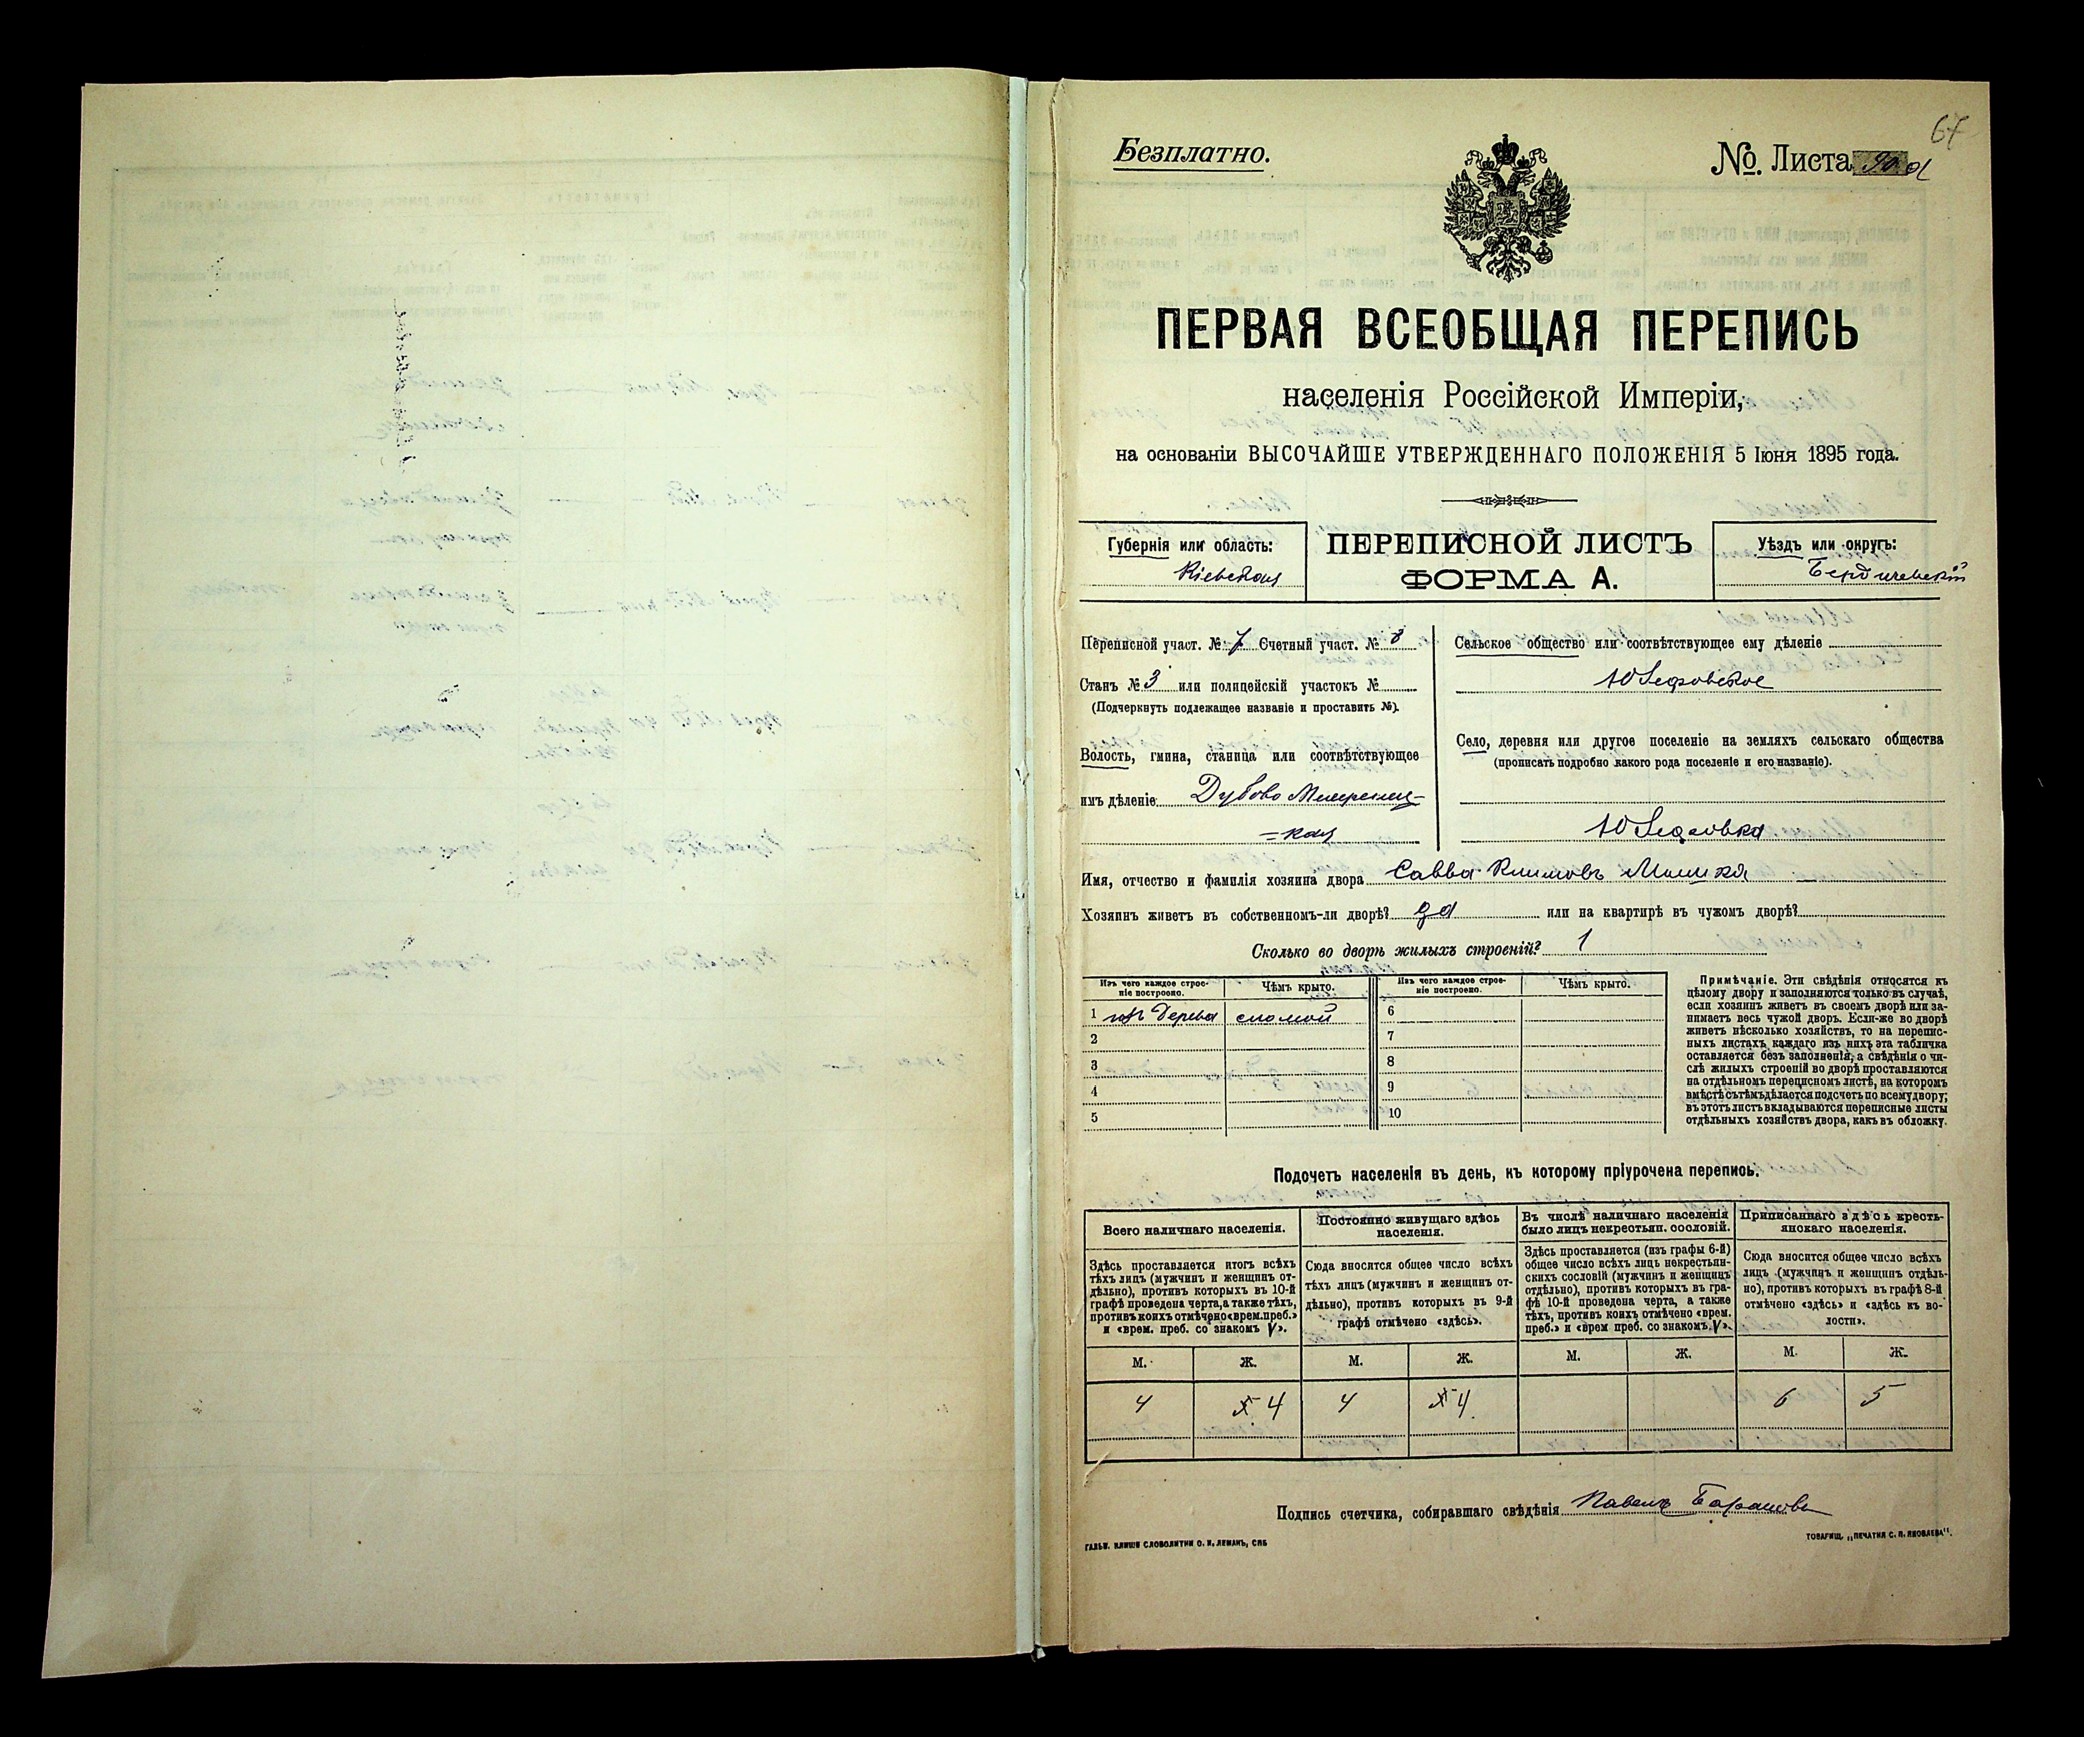 67
Безплатно.
№. Листа
ПЕРВАЯ ВСЕОБЩАЯ ПЕРЕПИСЬ
населенія Россійской Имперіи,
на основаніи ВЫСОЧАЙШЕ УТВЕРЖДЕННАГО ПОЛОЖЕНІЯ 5 Іюня 1895 года.
Губернія или область:
Кіевская
ПЕРЕПИСНОЙ ЛИСТЪ
ФОРМА А.
Уѣздъ или округъ:
Бердичевскій
Переписной участ. № 7 Счетный участ. № 8
Станъ № 3 или полицейскій участокъ №
(Подчеркнуть подлежащее названіе и проставить №).
Волость, гмина, станица или соотвѣтствующее
имъ дѣленіе Дубово Махринец-
=кая
Сельское общество или соотвѣтствующее ему дѣленіе
Юзефовское
Село, деревня или другое поселеніе на земляхъ сельскаго общества
(прописать подробно какого рода поселеніе и его названіе).
Юзефовка
Имя, отчество и фамилія хозяина двора Савва Климовъ
Хозяинъ живетъ въ собственномъ-ли дворѣ? да или на квартирѣ въ чужомъ дворѣ?
Сколько во дворѣ жилыхъ строеній? 1
Изъ чего каждое строе-
ніе построено.
Чѣмъ крыто.
Изъ чего каждое строе-
ніе построено.
Чѣмъ крыто.
1 изъ дерева соломой 6
2 7
3 8
4 9
5 10
Примѣчаніе. Эти свѣдѣнія относятся къ
цѣлому двору и заполняются только въ случаѣ,
если хозяинъ живетъ въ своемъ дворѣ или за-
нимаетъ весь чужой дворъ. Если-же во дворѣ
живетъ нѣсколько хозяйствъ, то на перепис-
ныхъ листахъ каждаго изъ нихъ эта табличка
оставляется безъ заполненія, а свѣдѣнія о чи-
слѣ жилыхъ строеній во дворѣ проставляются
на отдѣльномъ переписномъ листѣ, на которомъ
вмѣстѣ съ тѣмъ дѣлается подсчетъ по всему двору;
въ этотъ листъ вкладываются переписные листы
отдѣльныхъ хозяйствъ двора, какъ въ обложку.
Подсчетъ населенія въ день, къ которому пріурочена перепись.
Всего наличнаго населенія.
Здѣсь проставляется итогъ всѣхъ
тѣхъ лицъ (мужчинъ и женщинъ от-
дѣльно), противъ которыхъ въ 10-й
графѣ проведена черта, а также тѣхъ,
противъ коихъ отмѣчено «врем. преб.»
и «врем. преб. со знакомъ V».
Постоянно живущаго здѣсь
населенія.
Сюда вносится общее число всѣхъ
тѣхъ лицъ (мужчинъ и женщинъ от-
дѣльно), противъ которыхъ въ 9-й
графѣ отмѣчено «здѣсь».
Въ числѣ наличнаго населенія
было лицъ некрестьян. сословій.
Здѣсь проставляется (изъ графы 6-й)
общее число всѣхъ лицъ некрестьян-
скихъ сословій (мужчинъ и женщинъ
отдѣльно), противъ которыхъ въ гра-
фѣ 10-й проведена черта, а также
тѣхъ, противъ коихъ отмѣчено «врем.
преб.» и «врем преб. со знакомъ V».
Приписаннаго здѣсь кресть-
янскаго населенія.
Сюда вносится общее число всѣхъ
лицъ (мужчинъ и женщинъ отдѣль-
но), противъ которыхъ въ графѣ 8-й
отмѣчено «здѣсь» и «здѣсь къ во-
лости».
М. Ж. М. Ж. М. Ж. М. Ж.
4 4 4 4 6 5
Подпись счетчика, собиравшаго свѣдѣнія Павелъ Барановъ
ГАЛЬВ. КЛИШЕ СЛОВОЛИТНИ О. И. ЛЕМАНЪ, СПБ
ТОВАРИЩ. „ПЕЧАТНЯ С. П. ЯКОВЛЕВА".